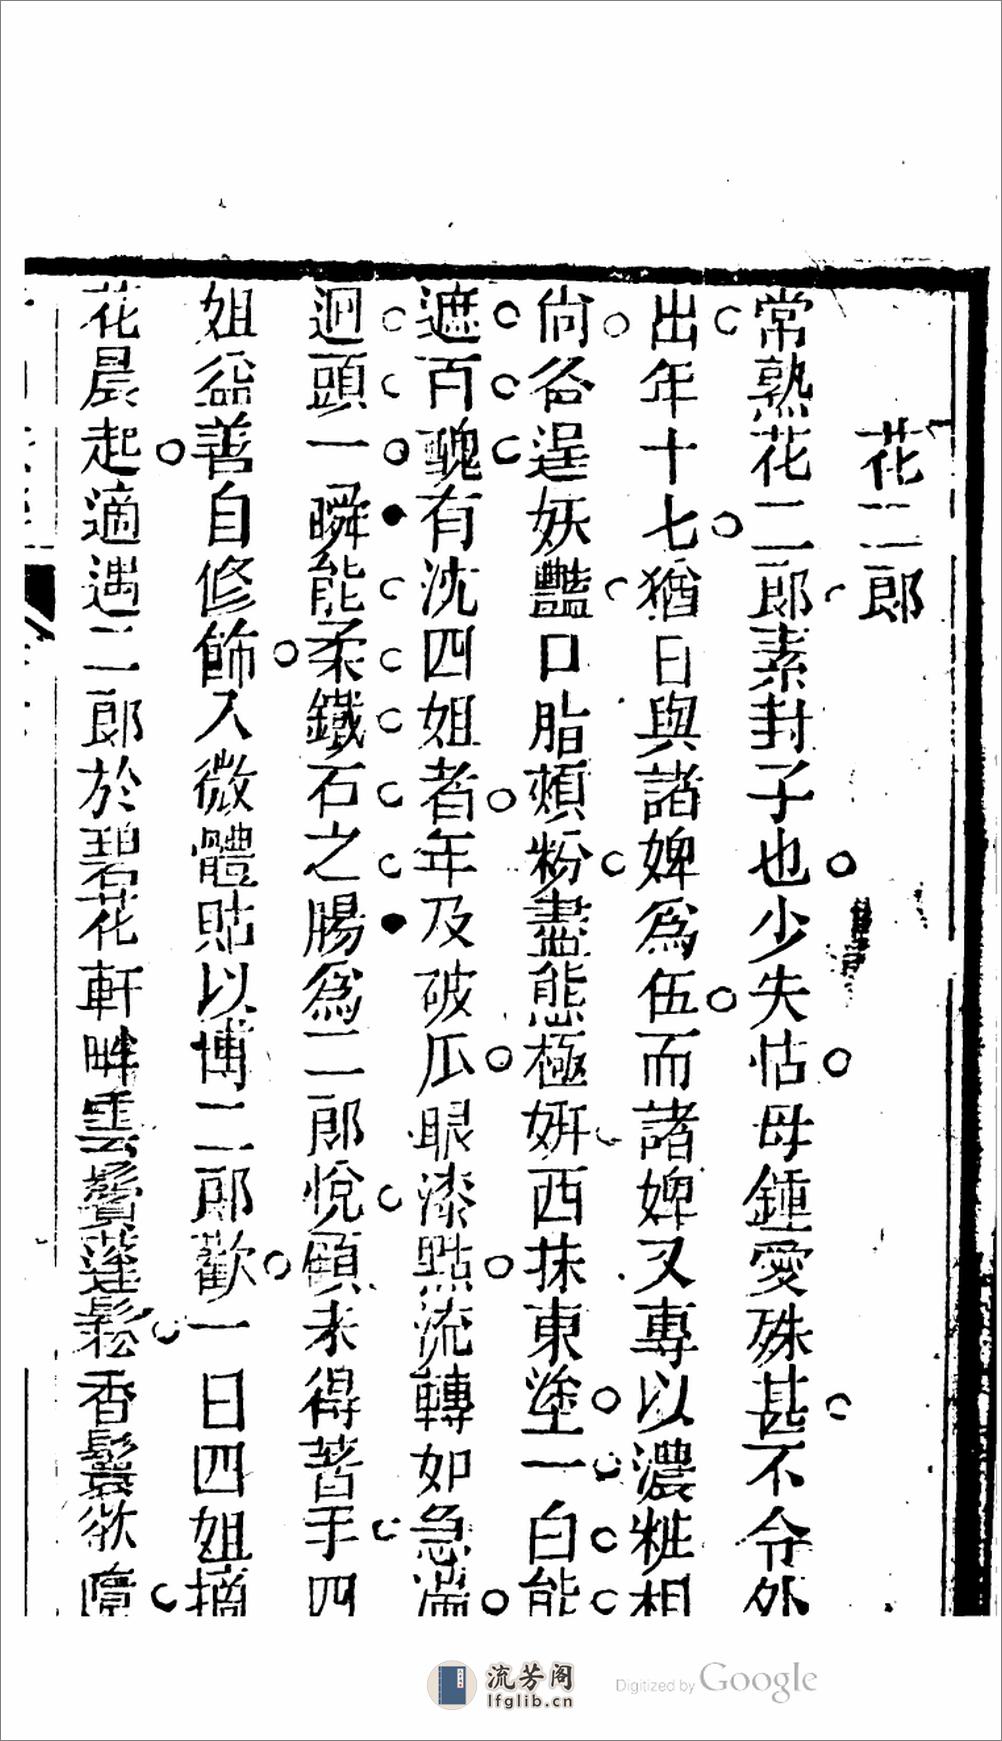 花二郎
常熟花二郎素封子也少失怙母鍾愛殊甚不令外
出年十七猶日與諸婢爲伍而諸婢又專以濃粧相
尙各逞妖豔口脂頰粉盡態極妍西抹東塗一白能
遮百醜有沈四姐者年及破瓜眼漆點流轉如急湍
迴頭一瞬能柔鐵石之腸爲二郎悅顧未得著手四
姐益善自修飾入微體貼以博二郎歡一日四姐摘
花晨起適遇二郎於碧花軒畔雲鬢蓬鬆香鬟欲墮
流芳阁
lfglib.cn
Digitized by Google